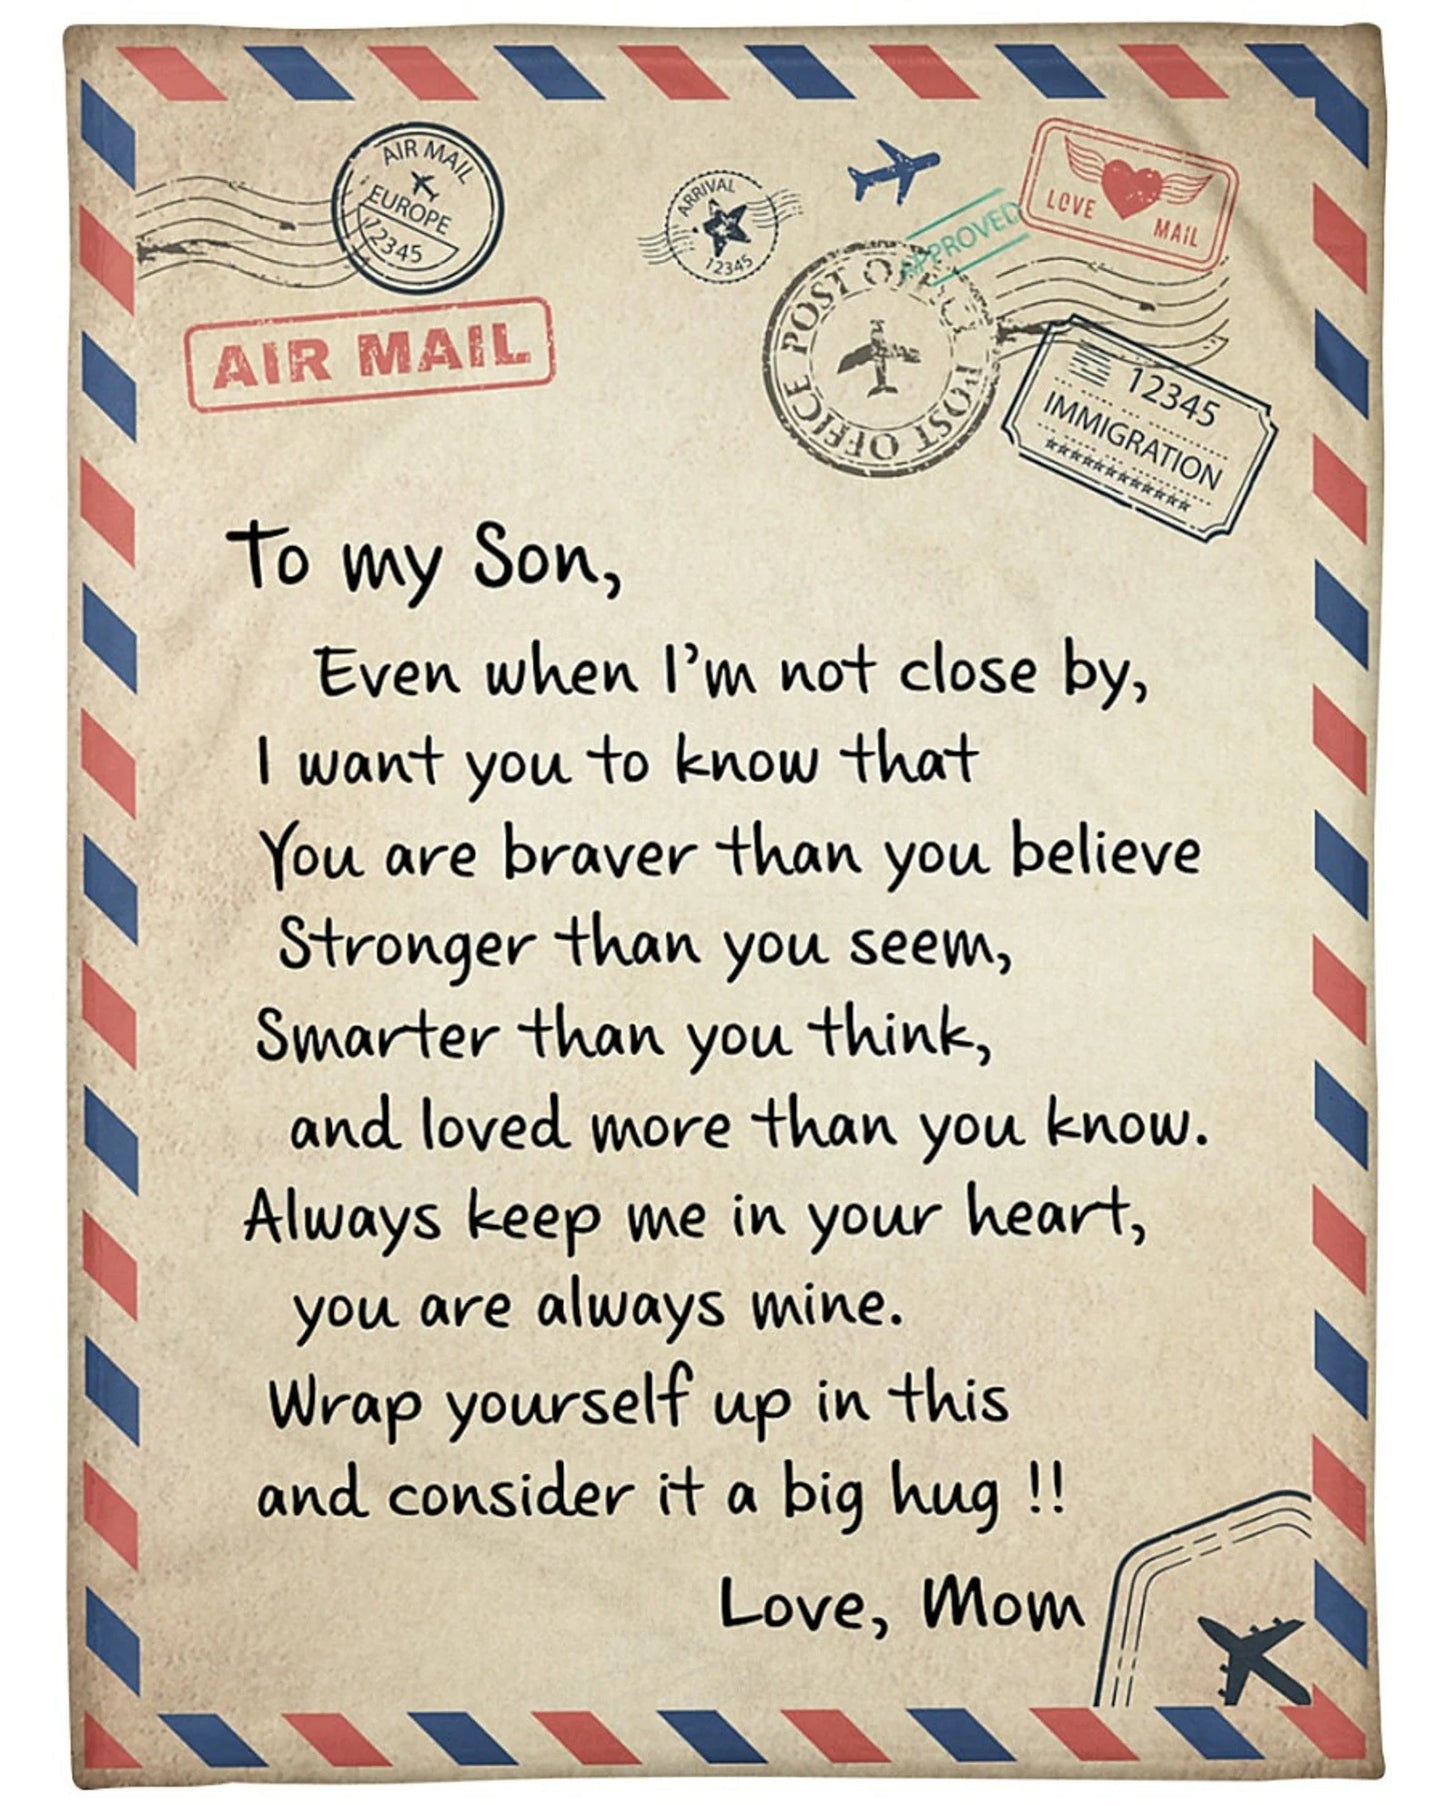 AIR MAIL
EUROPE
12345
ARRIVAL
12345
APPROVED
LOVE MAIL
AIR MAIL
POST OFFICE POST OFFICE
12345
IMMIGRATION
To my Son,
Even when I'm not close by,
I want you to know that
You are braver than you believe
Stronger than you seem,
Smarter than you think,
and loved more than you know.
Always keep me in your heart,
you are always mine.
Wrap yourself up in this
and consider it a big hug !!
Love, Mom